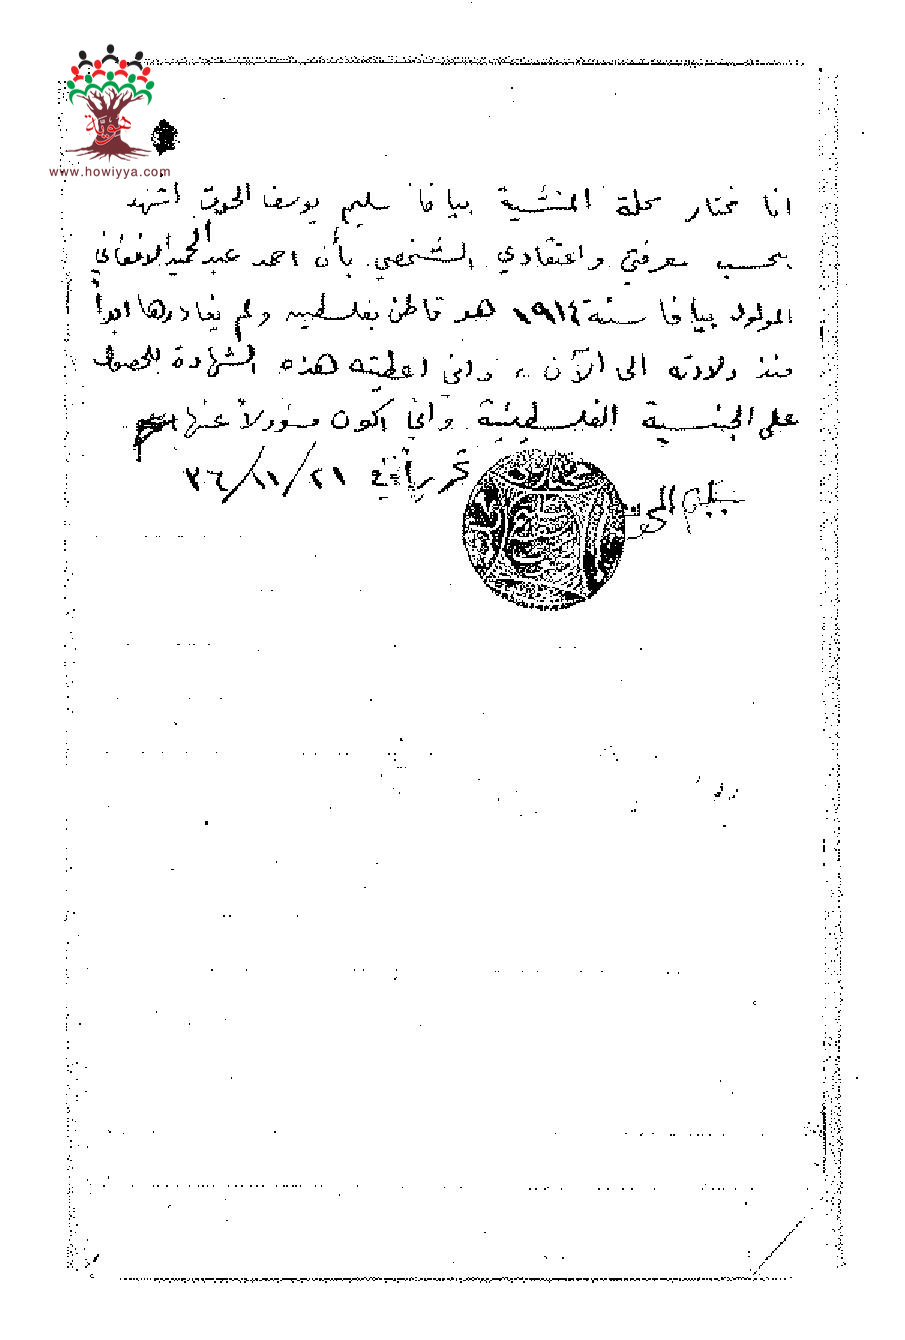 هوية
www.howiyya.com
انا مختار محلة المنشية بيافا سليم يوسف الحوت اشهد
بحسب معرفتي واعتقادي الشخصي بأن احمد عبد الحميد الافغاني
المولود بيافا سنة ١٩١٤ هو قاطن بفلسطين ولم يغادرها ابداً
منذ ولادته الى الآن، واني اعطيته هذه الشهادة للحصول
على الجنسية الفلسطينية واني اكون مسؤولاً عنها
تحريراً في ٢١/١١/٣٦
سليم الحوت